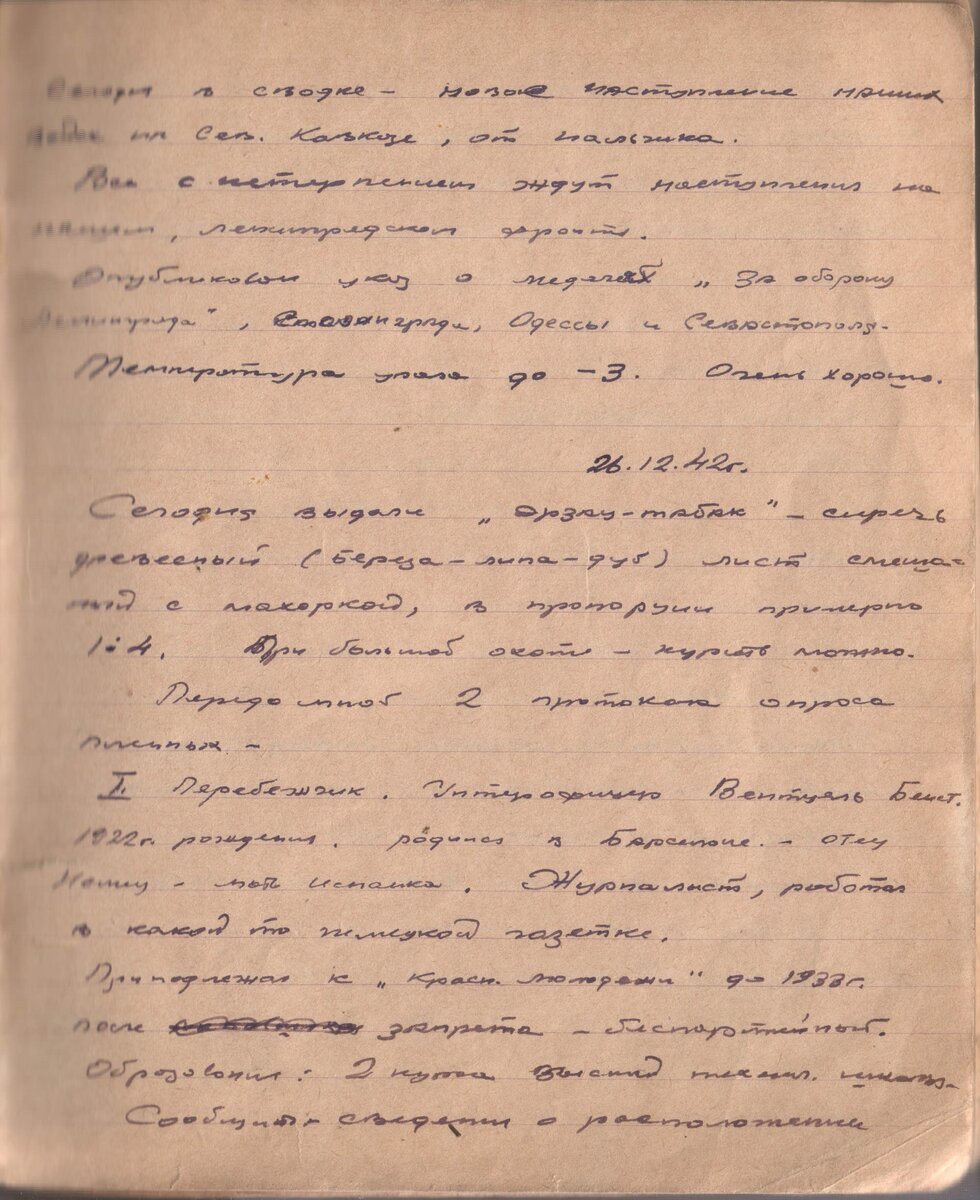 Сегодня в сводке – новое наступление наших
войск на Сев. Кавказе, от Нальчика.
Все с нетерпением ждут наступления на
нашем, Ленинградском фронте.
Опубликован указ о медалях „За оборону
Ленинграда", Сталинграда, Одессы и Севастополя.
Температура упала до –3. Очень хорошо.
26.12.42г.
Сегодня выдали „эрзац-табак" – сиречь
древесный (береза – липа – дуб) лист смеша-
ный с махоркой, в пропорции примерно
1:4. При большой охоте – курить можно.
Передо мной 2 протокола опроса
пленных –
I Перебежчик. Унтерофицер Вентцель
1922г. рождения. родился в Барселоне. – отец
Немец – мать испанка. Журналист, работал
в какой то немецкой газетке.
Принадлежал к „Красн. молодежи" до 1933г.
после запрета – беспартийный.
Образование: 2 курса высшей технич. школы.
Сообщить сведения о расположении